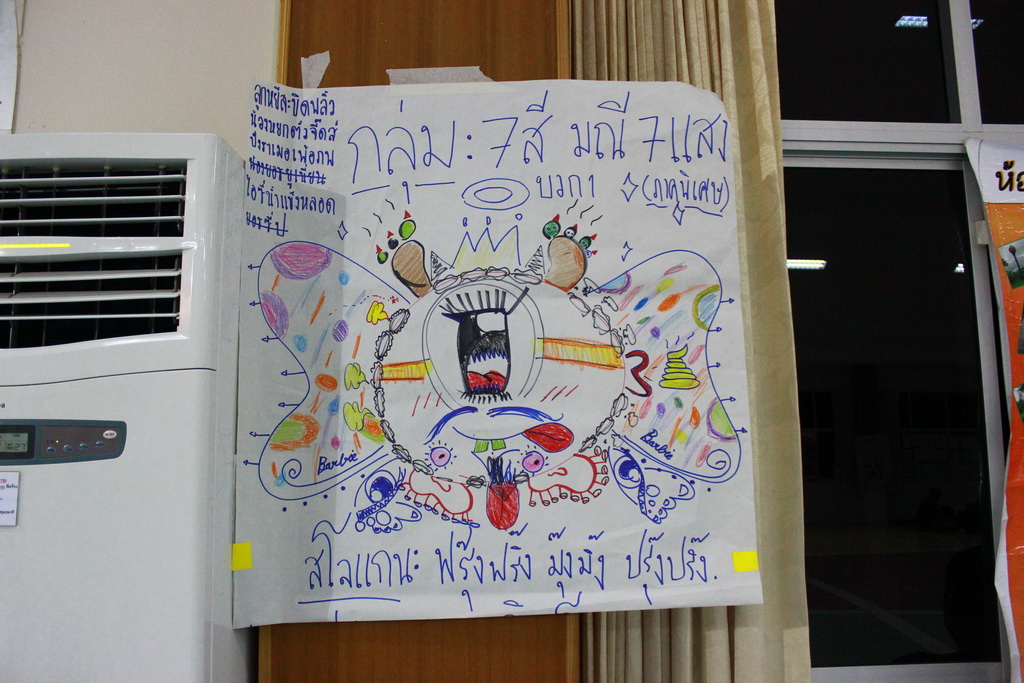 ลูกหยีสะบิดพลิ้ว
น้องหยกตัวจี๊ดส์
ปีราเมอเพ้อภพ
ไอซ์น้ำแข็งหลอด
กลุ่ม: 7สี มณี 7แสง
บวกา (ภาคพิเศษ)
Barbie
Barbie
สโลแกน: ฟรุ๊งฟริ้ง มุ้งมิ้ง ปรุ๊งปริ๊ง.
ห้อ